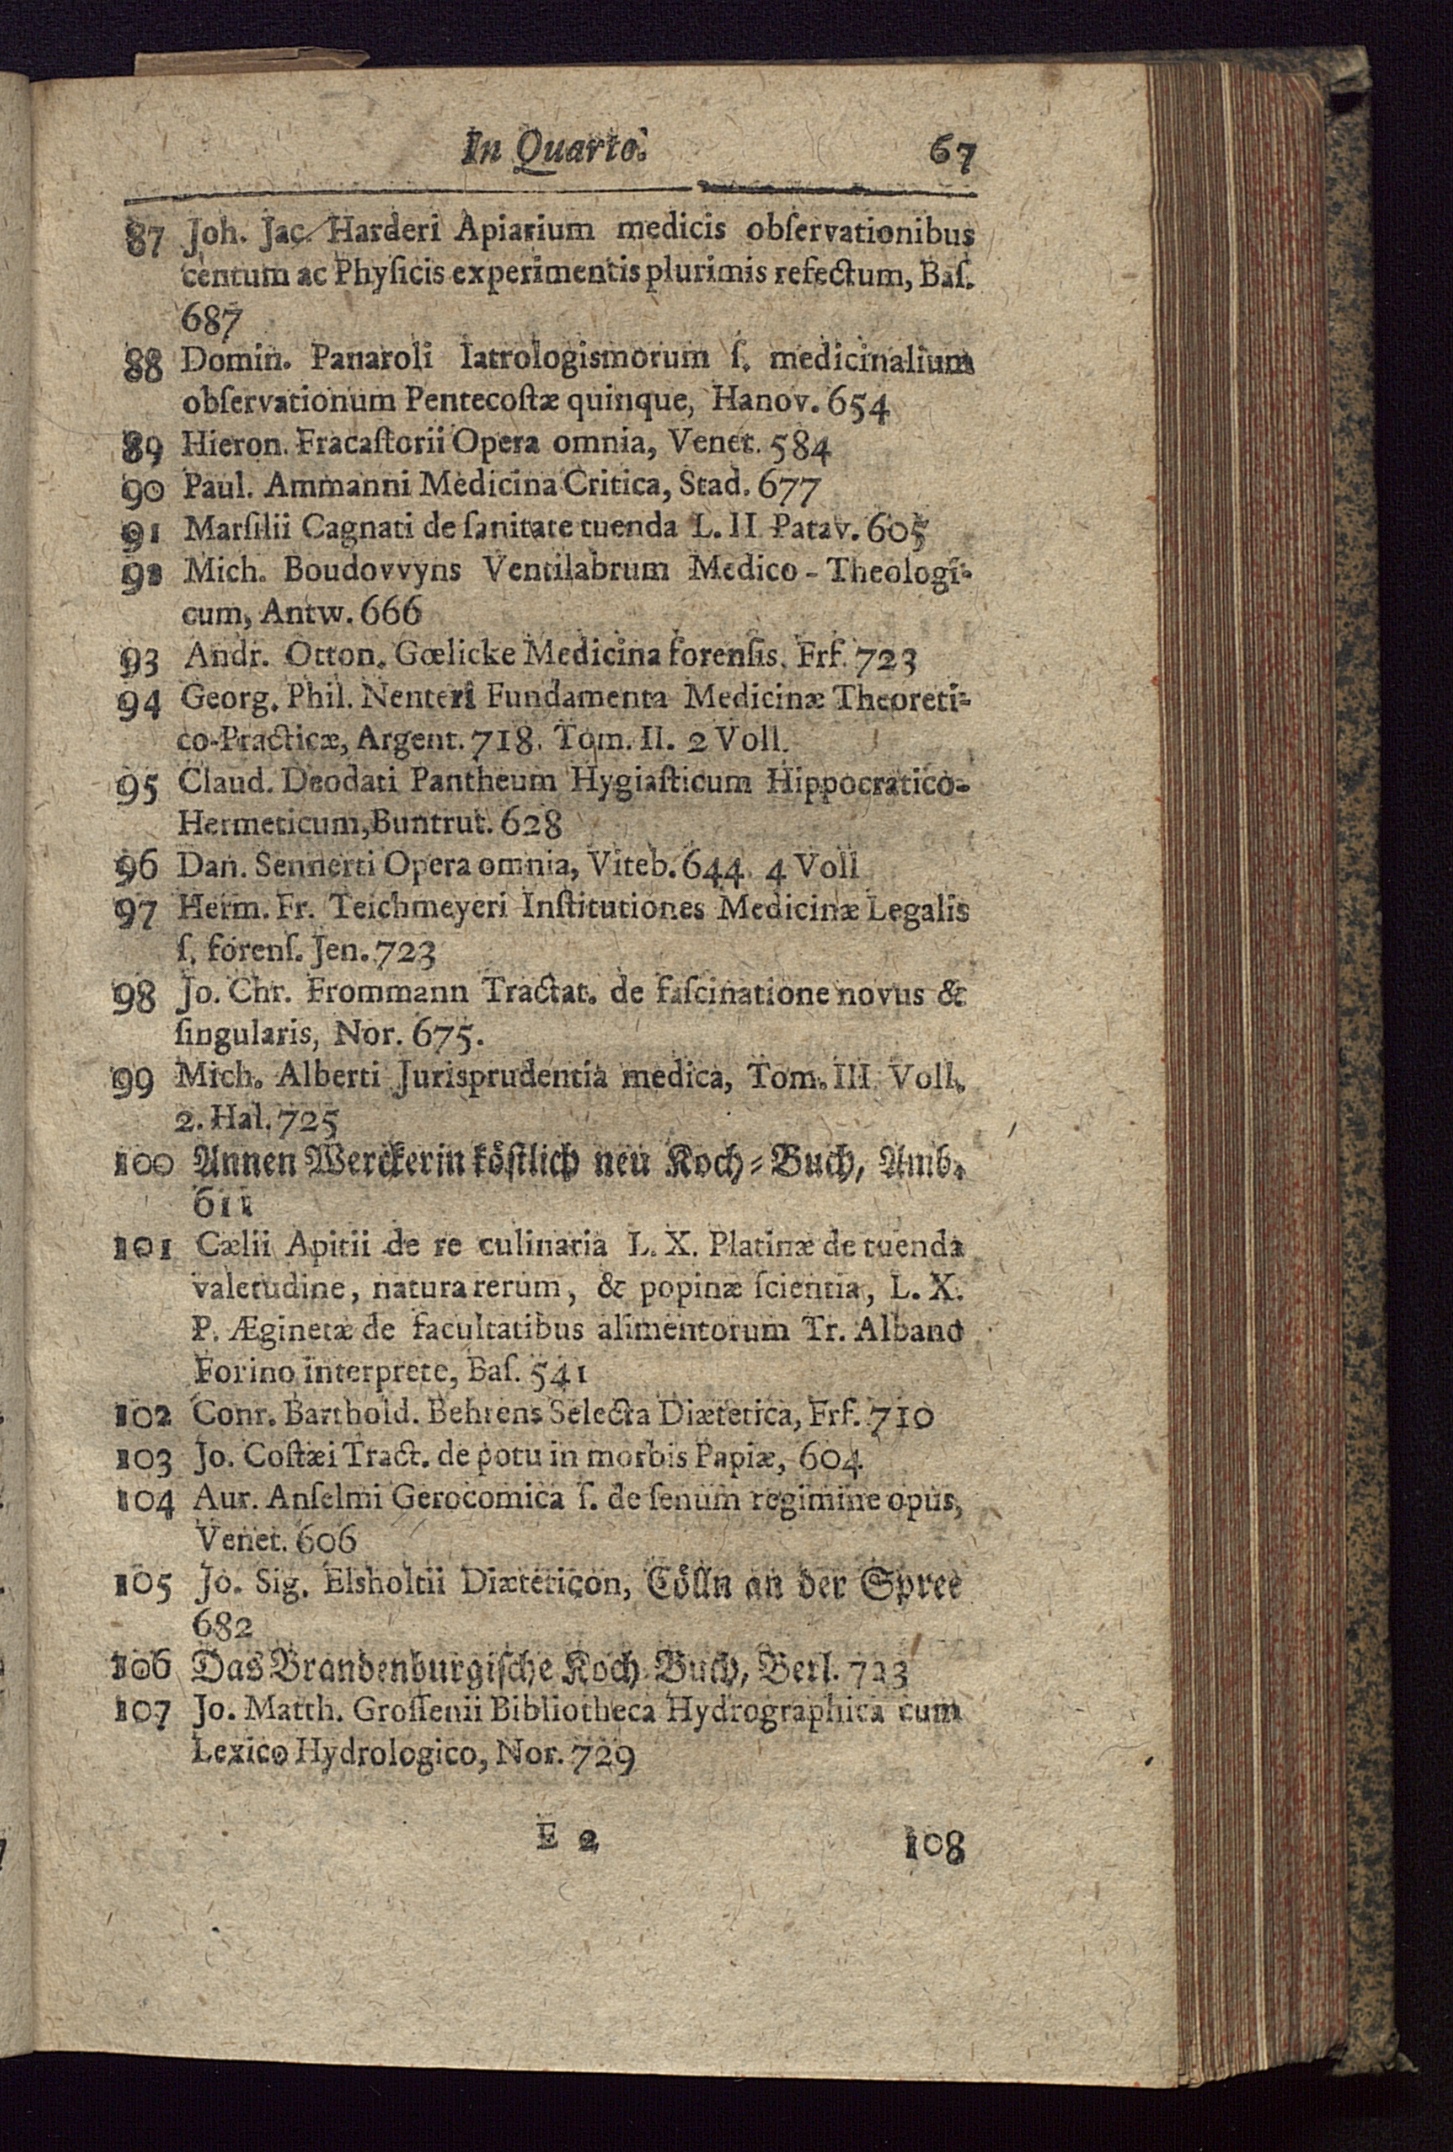 In Quarto. 67
87 Joh. Jac. Harderi Apiarium medicis obſervationibus
centum ac Phyſicis experimentis plurimis refectum, Baſ.
687
88 Domin. Panaroli Iatrologismorum ſ. medicinalium
obſervationum Pentecoſtæ quinque, Hanov. 654
89 Hieron. Fracaſtorii Opera omnia, Venet. 584
90 Paul. Ammanni Medicina Critica, Stad. 677
91 Marſilii Cagnati de ſanitate tuenda L. II Patav. 605
92 Mich. Boudovvyns Ventilabrum Medico-Theologi-
cum, Antw. 666
93 Andr. Otton. Gœlicke Medicina forenſis. Frf. 723
94 Georg. Phil. Nenteri Fundamenta Medicinæ Theoreti-
co-Practicæ, Argent. 718. Tom. II. 2 Voll.
95 Claud. Deodati Pantheum Hygiaſticum Hippocratico-
Hermeticum, Buntrut. 628
96 Dan. Sennerti Opera omnia, Viteb. 644. 4 Voll
97 Herm. Fr. Teichmeyeri Inſtitutiones Medicinæ Legalis
ſ. forenſ. Jen. 723
98 Jo. Chr. Frommann Tractat. de faſcinatione novus &
ſingularis, Nor. 675.
99 Mich. Alberti Jurisprudentia medica, Tom. III. Voll.
2. Hal. 725
100 Annen Werckerin köſtlich neu Koch-Buch, Amb.
611
101 Cælii Apitii de re culinaria L. X. Platinæ de tuenda
valetudine, natura rerum, & popinæ ſcientia, L. X.
P. Æginetæ de facultatibus alimentorum Tr. Albano
Forino interprete, Baſ. 541
102 Conr. Barthold. Behrens Selecta Diætetica, Frf. 710
103 Jo. Coſtæi Tract. de potu in morbis Papiæ, 604
104 Aur. Anſelmi Gerocomica ſ. de ſenum regimine opus,
Venet. 606
105 Jo. Sig. Elsholtii Diæteticon, Cölln an der Spree
682
106 Das Brandenburgiſche Koch-Buch, Berl. 723
107 Jo. Matth. Groſſenii Bibliotheca Hydrographica cum
Lexico Hydrologico, Nor. 729
E 2 108